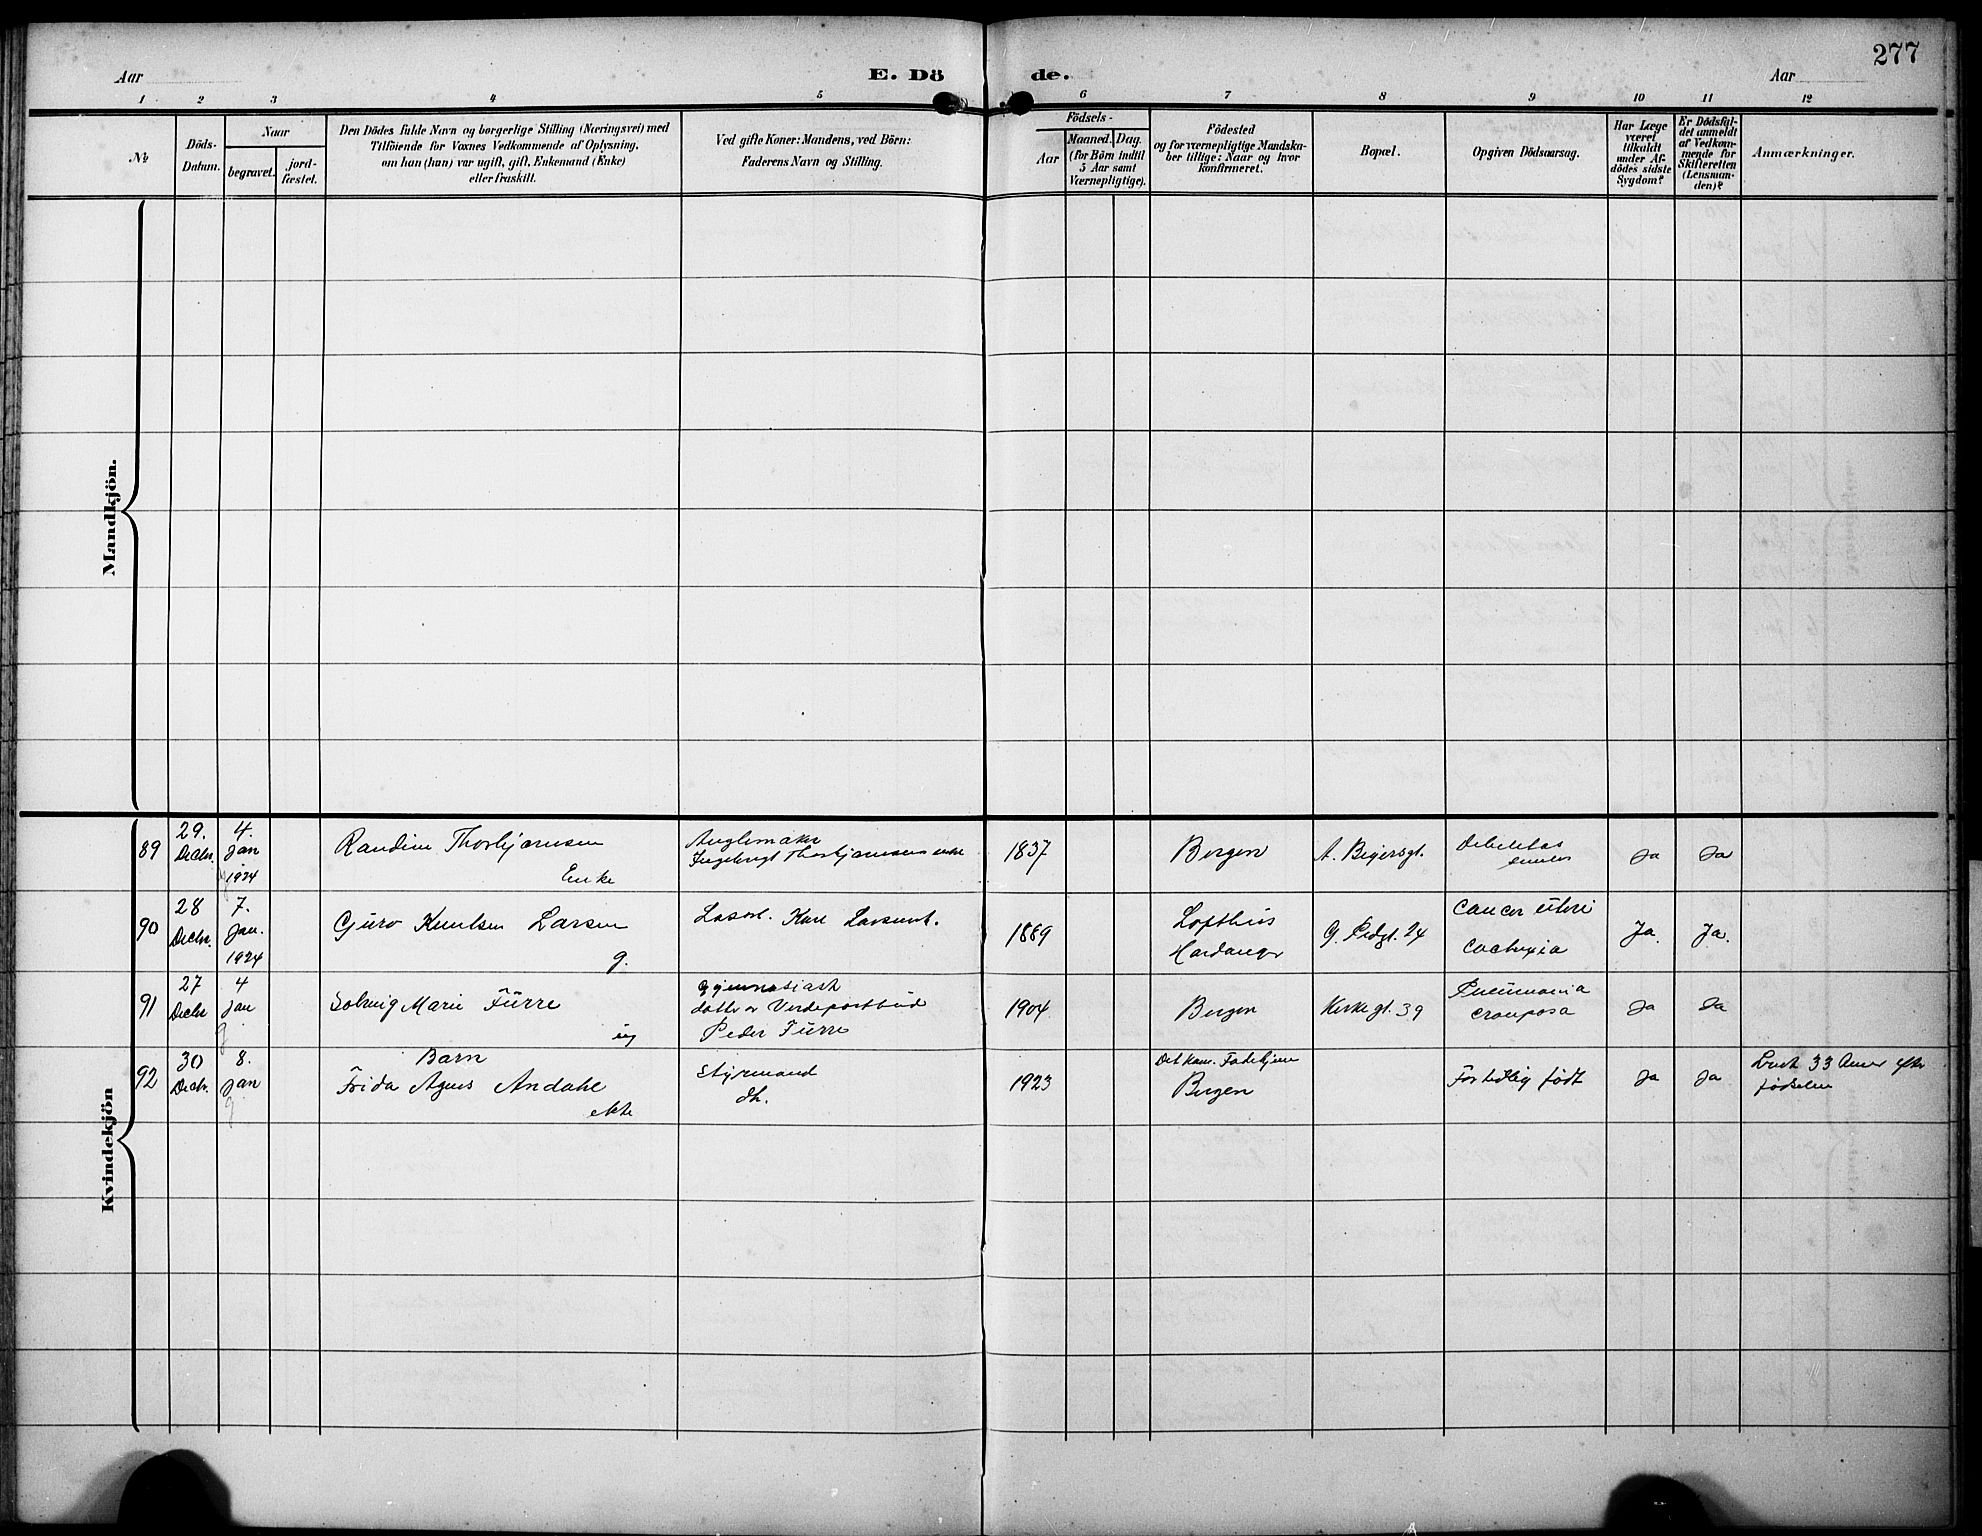 277
Aar
E. Dö
de.
Aar
1 2 3 4 5 6 7 8 9 10 11 12
No
Döds-
Datum.
Naar
begravet.
jord-
fæstet.
Den Dödes fulde Navn og borgerlige Stilling (Næringsvei) med
Tilföiende for Voxnes Vedkommende af Oplysning,
om han (hun) var ugift, gift, Enkemand (Enke)
eller fraskilt.
Ved gifte Koner: Mandens, ved Börn:
Faderens Navn og Stilling.
Födsels-
Aar
Maaned. Dag.
(for Börn indtil
5 Aar samt
Værnepligtige).
Födested
og for værnepligtige Mandska-
ber tillige: Naar og hvor
konfirmeret.
Bopæl.
Opgiven Dödsaarsag.
Har Læge
været
tilkaldt
under Af-
dödes sidste
Sygdom?
Er Dödsfal-
det anmeldt
af Vedkom-
mende for
Skifteretten
(Lensman-
den)?
Anmærkninger.
Mandkjön.
Kvindekjön
89
29.
Decbr.
4.
Jan
1924
Randine Thorbjørnsen
Enke
Ingebrigt Thorbjørnsens enke
1837
Bergen
A. Beyersgt.
Debilitas
senilis
Ja
Ja
90
28
Decbr.
7.
Jan.
1924
Guro Knutsen Larsen
g.
Karl Larsen
1889
Lofthus
Hardanger
24
Cancer uteri
Cachexia
Ja.
Ja.
91
27
Decbr
4
Jan
Solveig Marie Fürre
ug
gymnasiast
datter av Verdipostbud
Peder Fürre
1904
Bergen
Kirkegt. 39
Pneumonia
crouposa
Ja
Ja
92
30
Decbr.
8.
Jan
Barn
Frida Agnes Andahl
ekte
Styrmand
dh.
1923
Det kom. Fødehjem
Bergen
For tidlig født
Ja
Ja
Levet 33 timer efter
fødselen